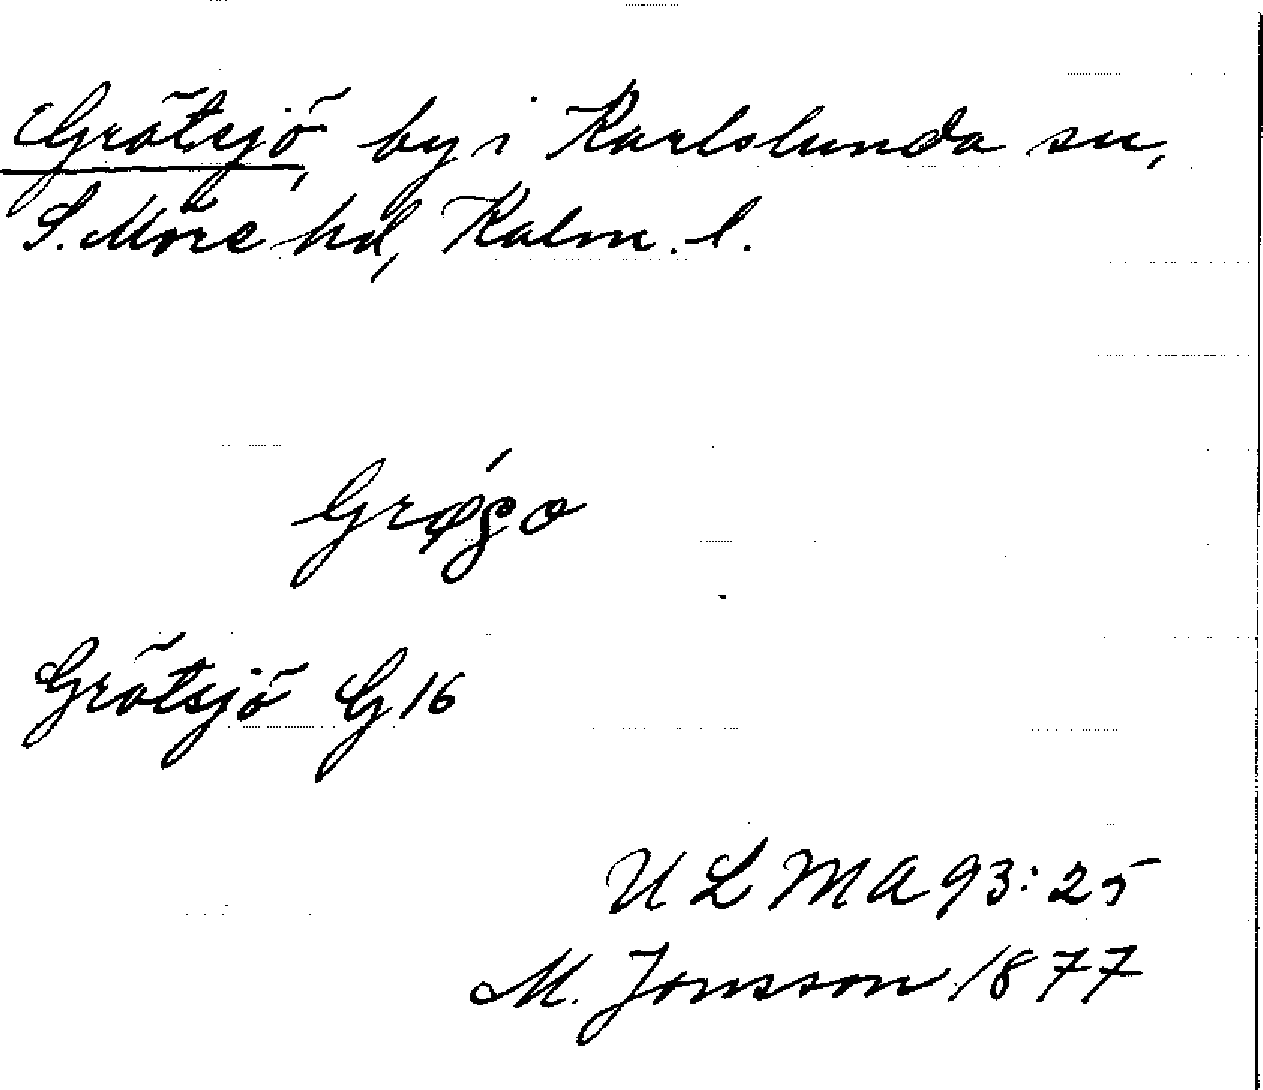 Grötsjö, by i Karlslunda sn,
S. Möre hd, Kalm. l.
Grötsjö G 16
U L M A 93:25
M. Jonsson 1877